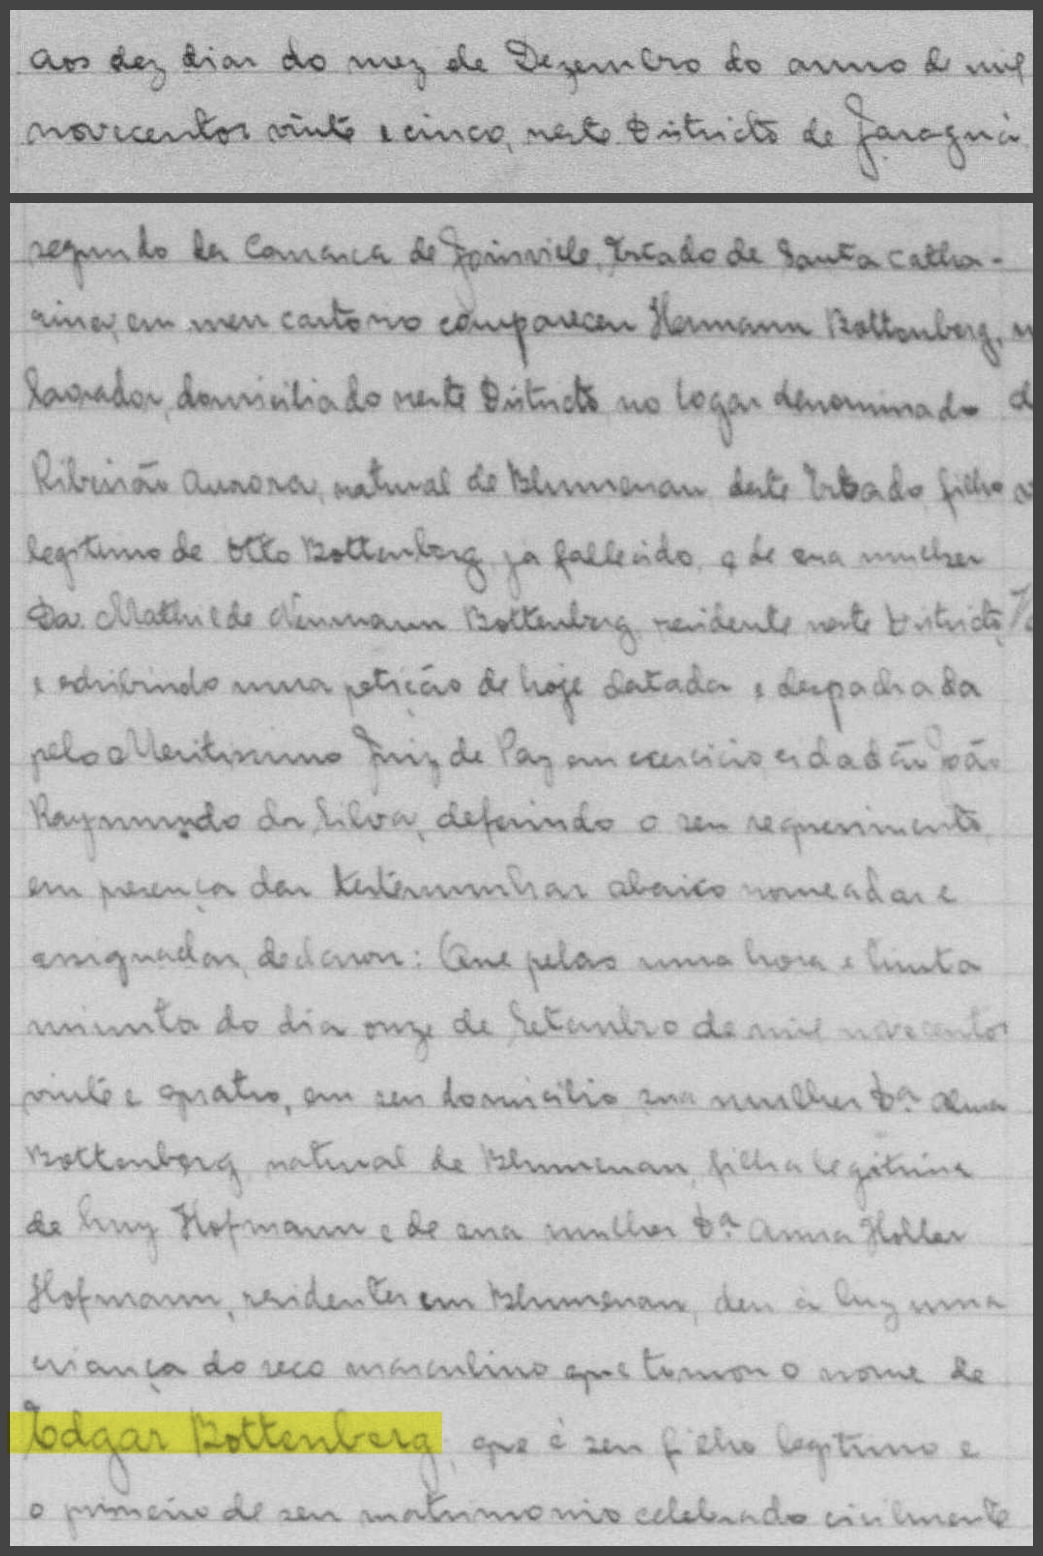 Aos dez dias do mez de Dezembro do anno de mil
novecentos vinte e cinco, neste Districto de Jaraguá,
segundo da Comarca de Joinville, Estado de Santa Catha-
rina, em meu cartorio compareceu Hermann Bottenberg,
lavrador, domiciliado neste Districto no logar denominado
Ribeirão Aurora, natural de Blumenau deste Estado, filho
legitimo de Otto Bottenberg, já fallecido, e de sua mulher
Da. Mathilde Neumann Bottenberg residente neste Districto,
e exhibindo uma petição de hoje datada e despachada
pelo Meritissimo Juiz de Paz em exercicio, cidadão João
Raymundo da Silva, deferindo o seu requerimento,
em presença das testemunhas abaixo nomeadas e
assignadas, declarou: Que pelas uma hora e trinta
minuta do dia onze de Setembro de mil novecentos
vinte e quatro, em seu domicilio sua mulher Dª Alma
Bottenberg, natural de Blumenau, filha legitima
de Luiz Hofmann e de sua mulher Dª Anna Holler
Hofmann, residentes em Blumenau, deu à luz uma
criança do sexo masculino que tomou o nome de
Edgar Bottenberg, que é seu filho legitimo e
o primeiro de seu matrimonio celebrado civilmente